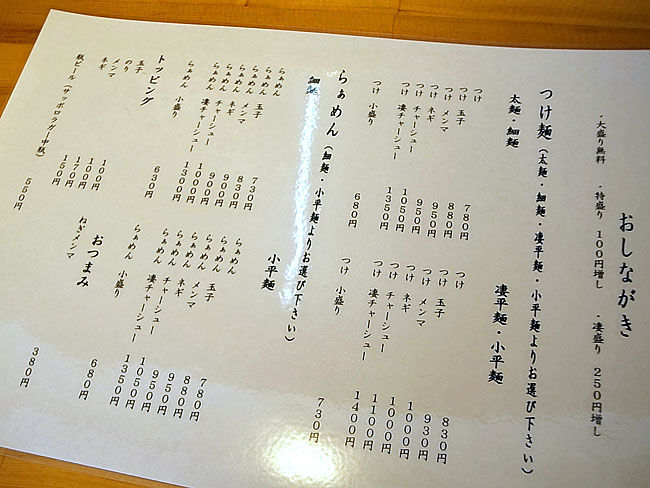 おしながき
・大盛り無料 ・特盛り 100円増し ・凄盛り 250円増し
つけ麺(太麺・細麺・凄平麺・小平麺よりお選び下さい)
太麺・細麺
つけ 780円
つけ 玉子 880円
つけ メンマ 950円
つけ ネギ 950円
つけ チャーシュー 1050円
つけ 凄チャーシュー 1350円
つけ 小盛り 680円
凄平麺・小平麺
つけ 830円
つけ 玉子 930円
つけ メンマ 1000円
つけ ネギ 1000円
つけ チャーシュー 1100円
つけ 凄チャーシュー 1400円
つけ 小盛り 730円
らぁめん(細麺・小平麺よりお選び下さい)
細麺
らぁめん 730円
らぁめん 玉子 830円
らぁめん メンマ 900円
らぁめん ネギ 900円
らぁめん チャーシュー 1000円
らぁめん 凄チャーシュー 1300円
らぁめん 小盛り 630円
小平麺
らぁめん 780円
らぁめん 玉子 880円
らぁめん メンマ 950円
らぁめん ネギ 950円
らぁめん チャーシュー 1050円
らぁめん 凄チャーシュー 1350円
らぁめん 小盛り 680円
トッピング
玉子 100円
のり 100円
メンマ 170円
ネギ 150円
瓶ビール(サッポロラガー中瓶) 550円
おつまみ
ねぎメンマ 380円